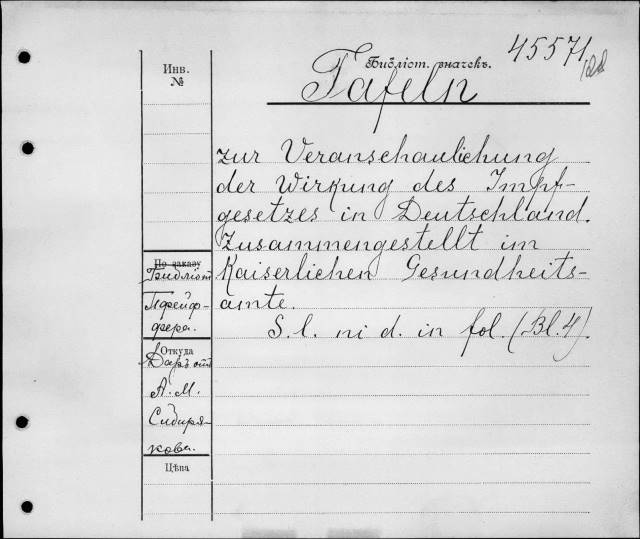 45571
Библіот. значекъ.
Tafeln
Инв.
№
zur Veranschaulichung
der Wirkung des Impf-
gesetzes in Deutschland.
Zusammengestellt im
Kaiserlichen Gesundheits-
amte.
S. l. ni d. in fol. (Bl. 4).
По заказу
Библіот
Пфейф-
фера.
Откуда
Даръ отъ
А. М.
Сибиря-
кова.
Цѣна